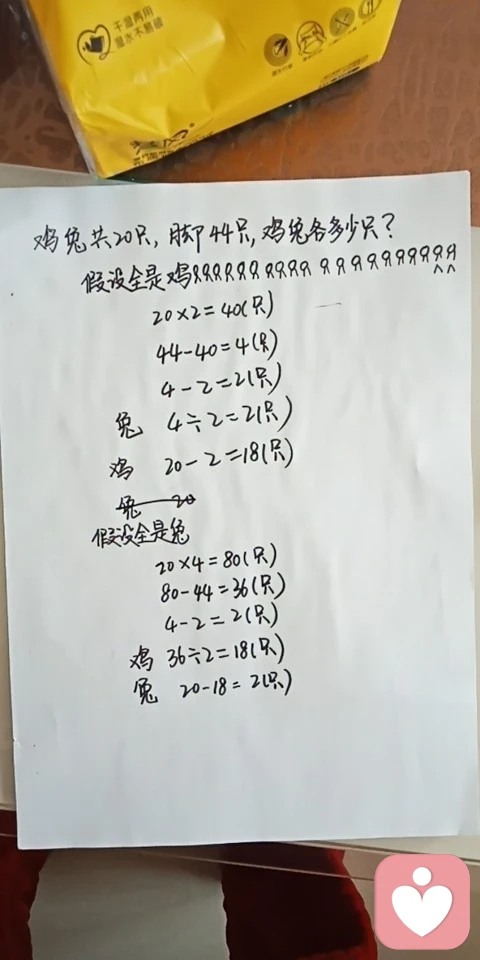 干湿两用
湿水不易破
鸡兔共20只,脚44只,鸡兔各多少只?
假设全是鸡
20×2=40(只)
44-40=4(只)
4-2=2(只)
兔 4÷2=2(只)
鸡 20-2=18(只)
兔 20
假设全是兔
20×4=80(只)
80-44=36(只)
4-2=2(只)
鸡 36÷2=18(只)
兔 20-18=2(只)